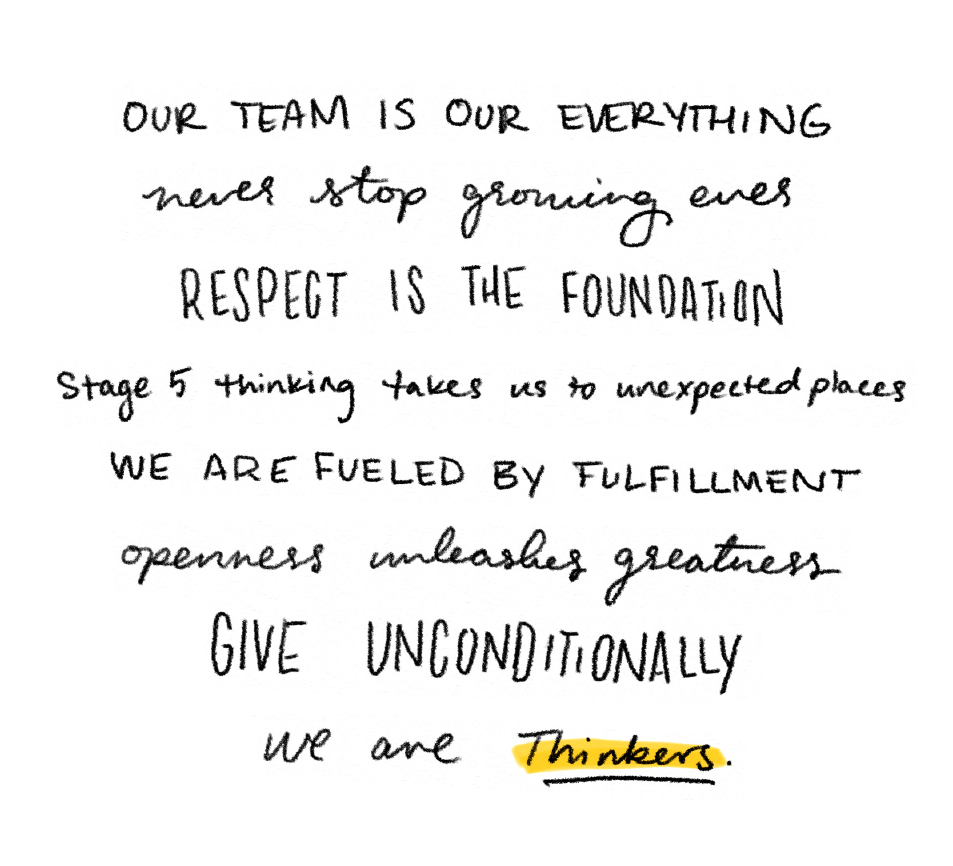 OUR TEAM IS OUR EVERYTHING
never stop growing ever
RESPECT IS THE FOUNDATION
Stage 5 thinking takes us to unexpected places
WE ARE FUELED BY FULFILLMENT
openness unleashes greatness
GIVE UNCONDITIONALLY
we are Thinkers.